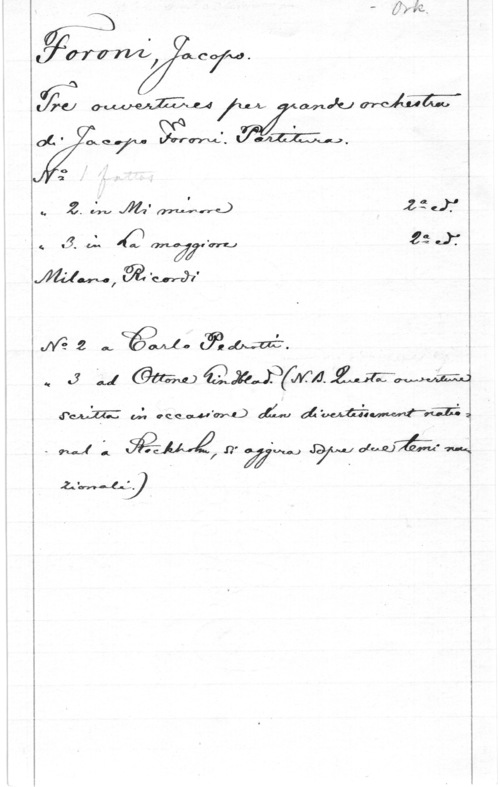 Ork.
Foroni, Jacopo.
Tre ouvertures per grande orchestra
di Jacopo Foroni. Partitura.
Nº 1 fattas
" 2. in Mi minore 2ª ed.
" 3. in La maggiore 2ª ed.
Milano, Ricordi
Nº 2 a Carlo Pedrotti.
" 3 ad Ottone Lindblad. (N.B. Questa ouverture
scritta in occasione d'un divertissement natio=
nal a Stockholm, si aggira sopra due temi na=
zionali.)